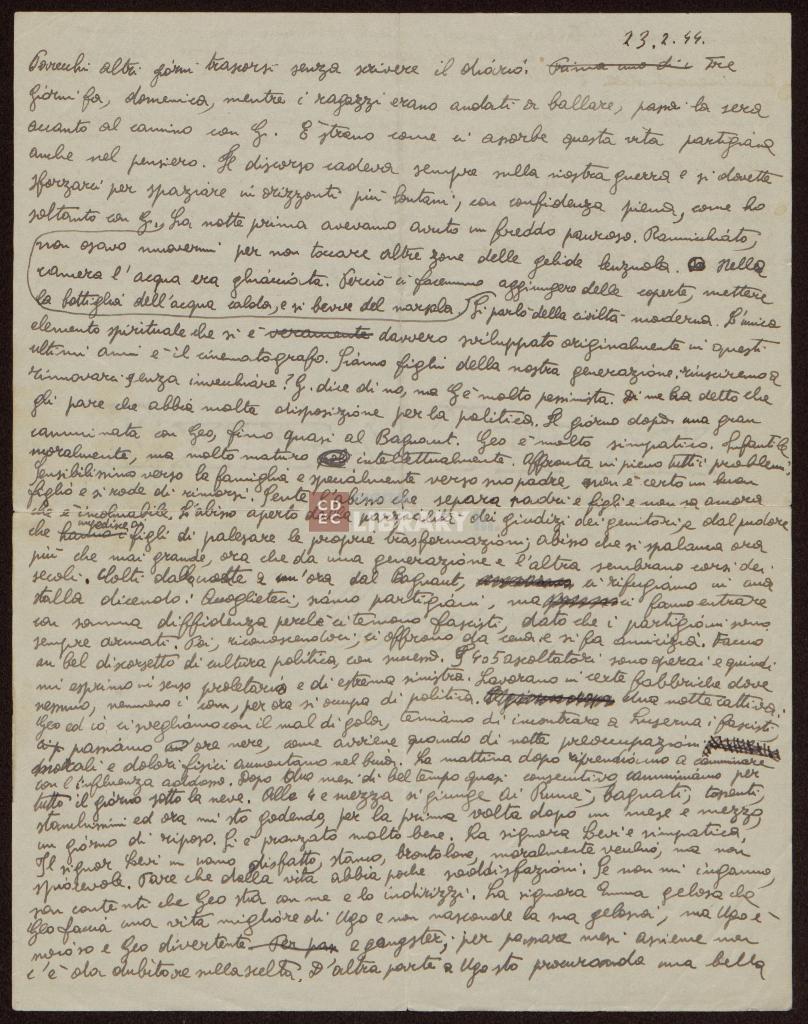 23.2.44.
Parecchi altri giorni trascorsi senza scrivere il diario. Prima uno di i Tre
giorni fa, domenica, mentre i ragazzi erano andati a ballare, passai la sera
accanto al camino con G. È strano come ci assorbe questa vita partigiana
anche nel pensiero. Il discorso cadeva sempre sulla nostra guerra e si dovette
sforzarci per spaziare in orizzonti più lontani, con confidenza piena, come ho
soltanto con G. La notte prima avevamo avuto un freddo pauroso. Rannicchiato,
non osavo muovermi per non toccare altre zone delle gelide lenzuola. Nella
camera l'acqua era ghiacciata. Perciò ci facemmo aggiungere delle coperte, mettere
la bottiglia dell'acqua calda, e si bevve del marsala. Si parlò della civiltà moderna. L'unico
elemento spirituale che si è veramente davvero sviluppato originalmente in questi
ultimi anni è il cinematografo. Siamo figli della nostra generazione, riusciremo a
rinnovarci senza invecchiare? G. dice di no, ma G è molto pessimista. Di me ha detto che
gli pare che abbia molta disposizione per la politica. Il giorno dopo una gran
camminata con Geo, fino quasi al Bagnaut. Geo è molto simpatico. Infantile
moralmente, ma molto maturo intellettualmente. Affronta in pieno tutti i problemi.
Sensibilissimo verso la famiglia e specialmente verso suo padre, non è certo un buon
figlio e si rode di rimorsi. Sente l'abisso che separa padri e figli e non sa ancora
che è incolmabile. L'abisso aperto dalla parzialità dei giudizi dei genitori e dal pudore
che hanno i impedisce ai figli di palesare le proprie trasformazioni; abisso che si spalanca ora
più che mai grande, ora che da una generazione e l'altra sembrano corsi dei
secoli. Colti dalla notte a un'ora dal Bagnaut, ci rifugiamo in una
stalla dicendo: Accoglieteci, siamo partigiani, ma ci fanno entrare
con somma diffidenza perché ci temono fascisti, dato che i partigiani sono
sempre armati. Poi, riconoscendoci, ci offrono da cena e si fa amicizia. Faccio
un bel discorsetto di cultura politica, con successo. I 4 o 5 ascoltatori sono operai e quindi
mi esprimo in senso proletario e di estrema sinistra. Lavorano in certe fabbriche dove
nessuno, nemmeno i com, per ora si occupa di politica. Una notte cattiva:
Geo ed io ci svegliamo con il mal di gola, temiamo di incontrare a Luserna i fascisti
passiamo ore nere, come avviene quando di notte preoccupazioni
morali e dolori fisici aumentano nel buio. La mattina dopo riprendiamo a camminare
con l'influenza addosso. Dopo due mesi di bel tempo quasi consecutivo camminiamo per
tutto il giorno sotto la neve. Alle 4 e mezza si giunge ai bagnati, tossenti,
stanchissimi ed ora mi sto godendo, per la prima volta dopo un mese e mezzo,
un giorno di riposo. Si è pranzato molto bene. La signora Levi è simpatica,
Il signor Levi un uomo disfatto, stanco, brontolone, moralmente vecchio, ma non
spiacevole. Pare che dalla vita abbia poche soddisfazioni. Se non mi inganno,
son contenti che Geo stia con me e lo indirizzi. La signora Emma gelosa che
Geo faccia una vita migliore di Ugo e non nasconde la sua gelosia, ma Ugo è
noioso e Geo divertente. Per pas e gangster; per passare mesi assieme non
c'è da dubitare sulla scelta. D'altra parte a Ugo sto procurando una bella
CDEC LIBRARY